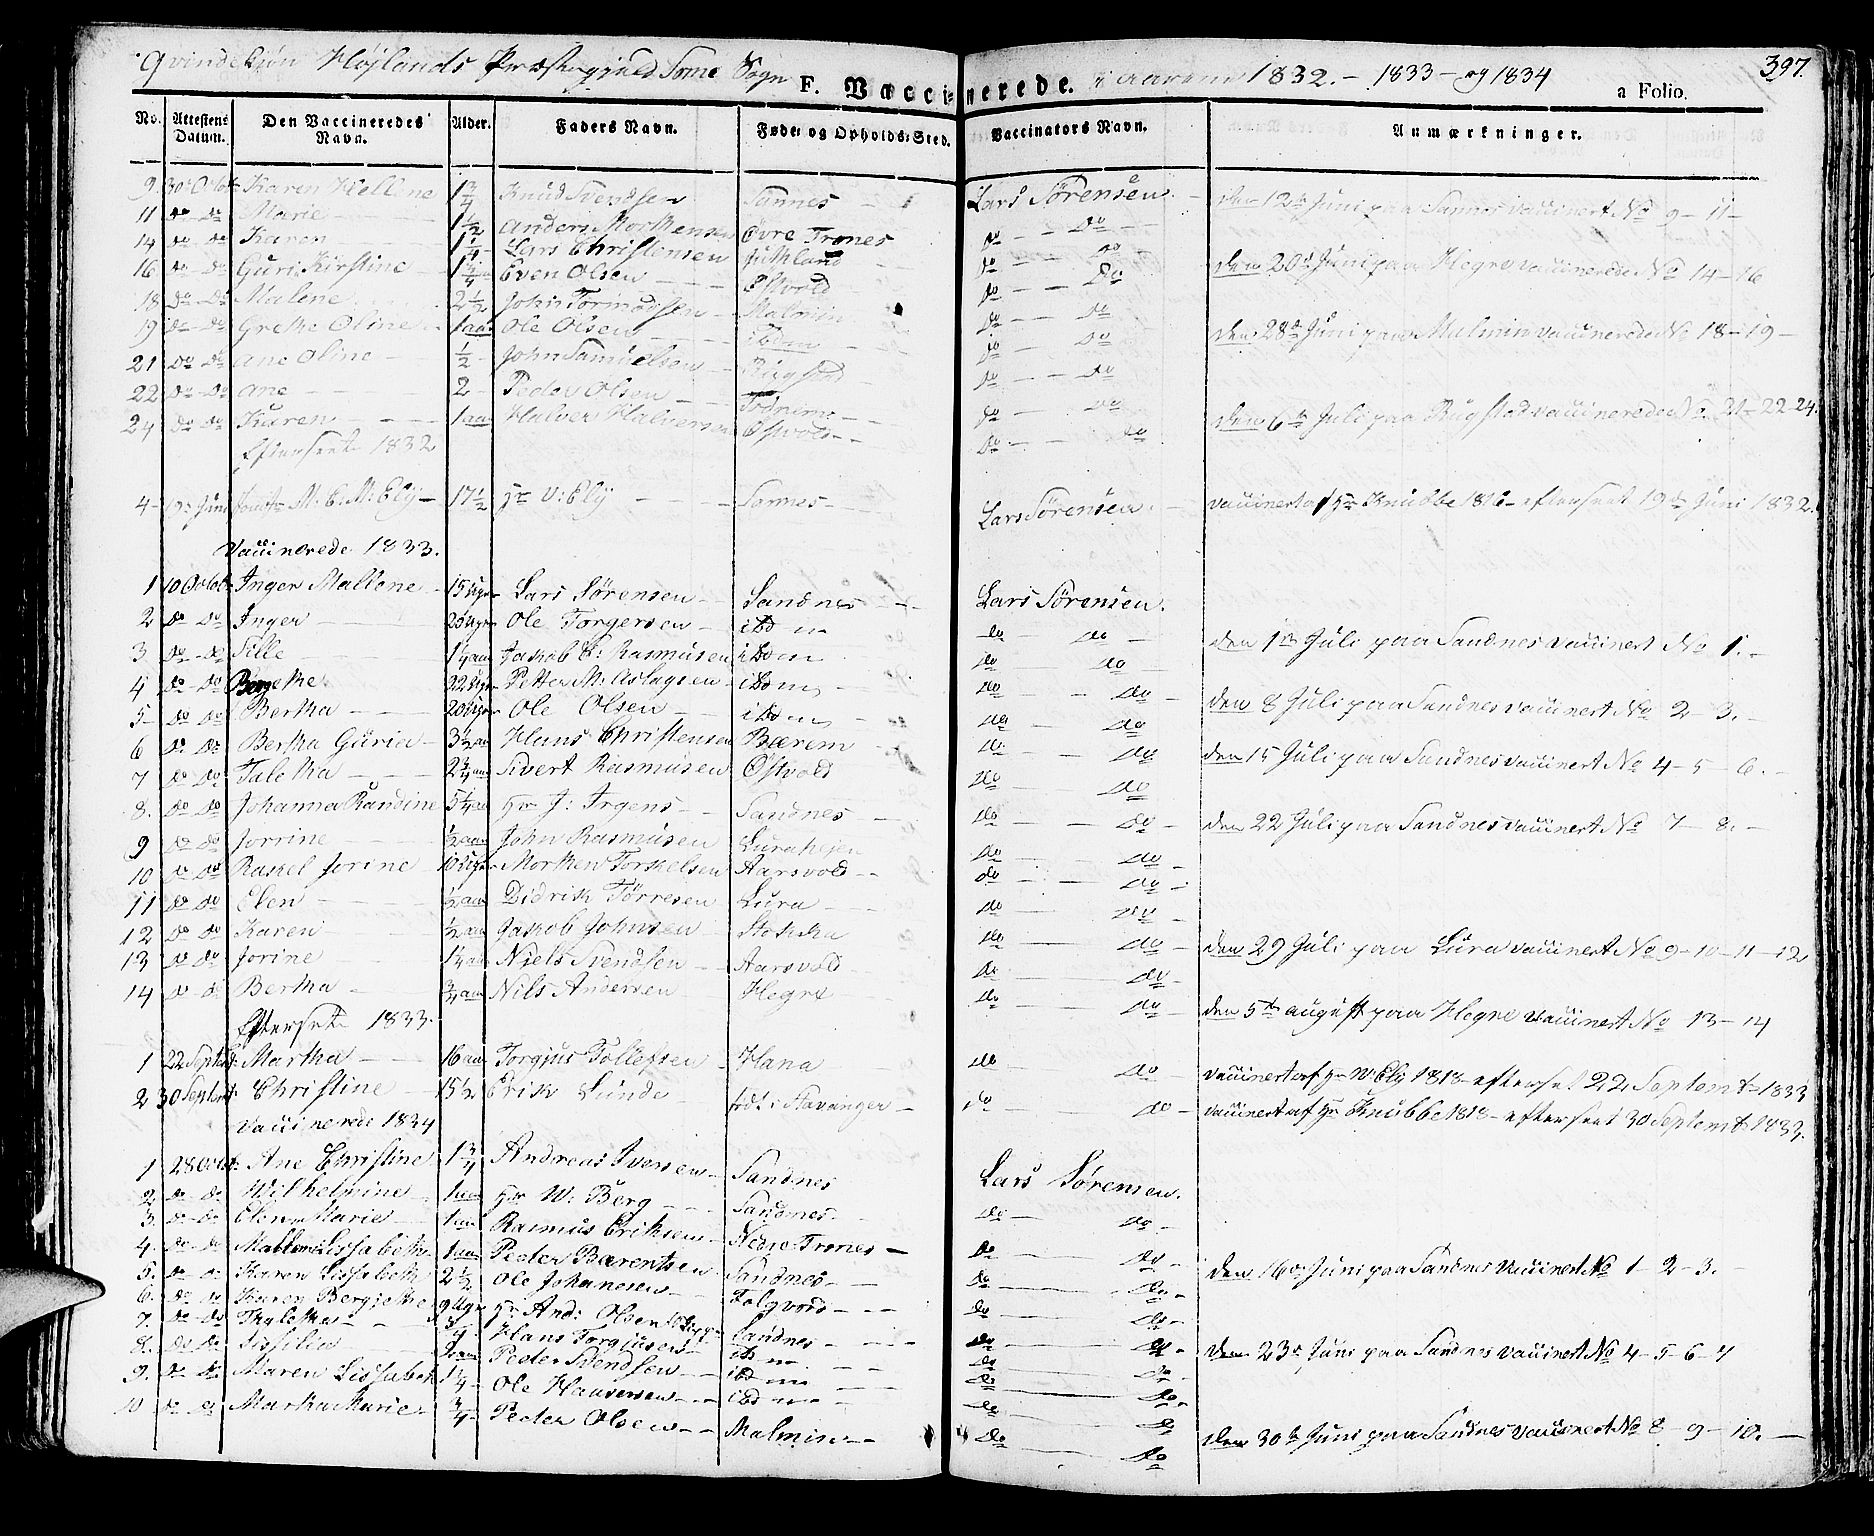 Qvindekjøn Højlands Præstegjæld Some Sogn F. Vaccinerede. i aarene 1832. - 1833 - og 1834 a Folio. 397.
No. Attestens Datum. Den Vaccineredes Navn. Alder. Faders Navn. Føde- og Opholds-Sted. Vaccinators Navn. Anmærkninger.
9. 30 Octob Karen Hellene 1 3/4 Knud Svendsen Sannes Lars Sørensen. den 12te Juni paa Sannes vaccinert No 9 - 11 -
11 do do Marie 1 1/2 Anders Morthensen Øvre Trones do do
14 do do Karen 1 1/4 Lars Christensen Juthland do do
16 do do Guri Kirstine 1 1/4 Even Olsen Østvold do do den 20de Juni paa Hegre vaccinerede No 14 - 16
18 do do Malene 2 1/2 John Tormodsen Malmin do do
19 do do Grethe Oline 1 aar Ole Olsen ibdem do do den 28de Juni paa Malmin vaccinerede No 18 - 19 -
21 do do Ane Oline 1/2 John Samuelsen Rugstad do do
22 do do Ane 2 - Peder Olsen Fodnem
24 do do Karen 1 aar Halver Halversen Østvold do do den 6te Juli paa Rugstad vaccinerede No 21 - 22 - 24.
Efterseet 1832 do do
4 - 19 Juni Jomfr M: C: M: Ely 17 1/2 Hr V: Ely Sannes Lars Sørensen. vaccinert af Hr Knubbe 1816 - efterseet 19de Juni 1832.
Vaccinerede 1833.
1 10 Octob: Inger Mallene 15 Uger Lars Sørensen Sandnes Lars Sørensen.
2 do do Inger 25 Uger Ole Torgersen ibdm do do den 1te Juli paa Sandnes vaccinert No 1. -
3 do do Sille 1 1/4 aar Jakob E: Rasmusen ibdm do do
4 do do Bergethe 22 Uger Petter M: Aslagsen ibdm do do den 8 Juli paa Sandnes vaccinert No 2 - 3. -
5 do do Bertha 20 Uger Ole Olsen ibdm do do
6 do do Bertha Guria 3 1/2 aar Hans Christensen Bærem do do den 15 Juli paa Sandnes vaccinert No 4 - 5 - 6. -
7 do do Taletha 2 3/4 aar Sivert Rasmusen Østvold do do
8. do do Johanna Randine 5 1/4 aar Hr J: Irgens Sandnes do do den 22 Juli paa Sandnes vaccinert No 7 - 8. -
9 do do Jorrine 1/2 aar John Rasmusen Lurahejen do do
10 do do Rakel Jorine 10 Uger Morthen Torkelsen Aarsvold do do
11 do do Elen 1/2 aar Didrik Tørresen Lura do do
12 do do Karen 1/2 aar Jakob Johnsen Stokka do do den 29 Juli paa Lura vaccinert No 9 - 10 - 11 - 12
13 do do Jorine 1 1/4 aar Niels Svendsen Aarsvold do do
14 do do Bertha 3/4 aar Nils Andersen Hegre do do den 5te august paa Hegre vaccinert No 13 - 14
Efterset 1833.
1 22 Septemb: Martha 16 aar Torgjus Tollefsen Hana do do vaccinert af Hr W: Ely 1818 - efterset 22 Septemb 1833
2 30 Septemb Christine 15 1/2 Erik Lunde født i Stavanger do do vaccinert af Hr Knubbe 1818 - efterseet 30 Septemb 1833.
Vaccinerede 1834
1 28 Octob: Ane Christine 1 3/4 Andreas Iversen Sandnes Lars Sørensen.
2. do do Wilhelmine 1 aar Hr W: Berg Sandnes do do
3. do do Elen Marie 1 aar Rasmus Eriksen Nedre Trones do do den 16de Juni paa Sandnes vaccinert No 1 - 2 - 3. -
4. do do Mallene Lissabeth 1 aar Peder Barentsen Sandnes do do
5. do do Karen Lissabeth 2 1/2 Ole Johanesen Folgvord do do
6. do do Karen Bergjethe 9 Uger Hr And: Olsen Sandnes do do
7. do do Thalethe 3/4 Hans Torgjusen ibdm do do den 23de Juni paa Sandnes vaccinert No 4 - 5 - 6 - 7
8. do do Sissilia Peder Svendsen ibdm do do
9. do do Maren Lissabeth 1 1/4 Ole Hansersen ibdm do do
10 do do Martha Marie 3/4 Peder Olsen Malmin do do den 30te Juni paa Sandnes vaccinert No 8 - 9 - 10. -